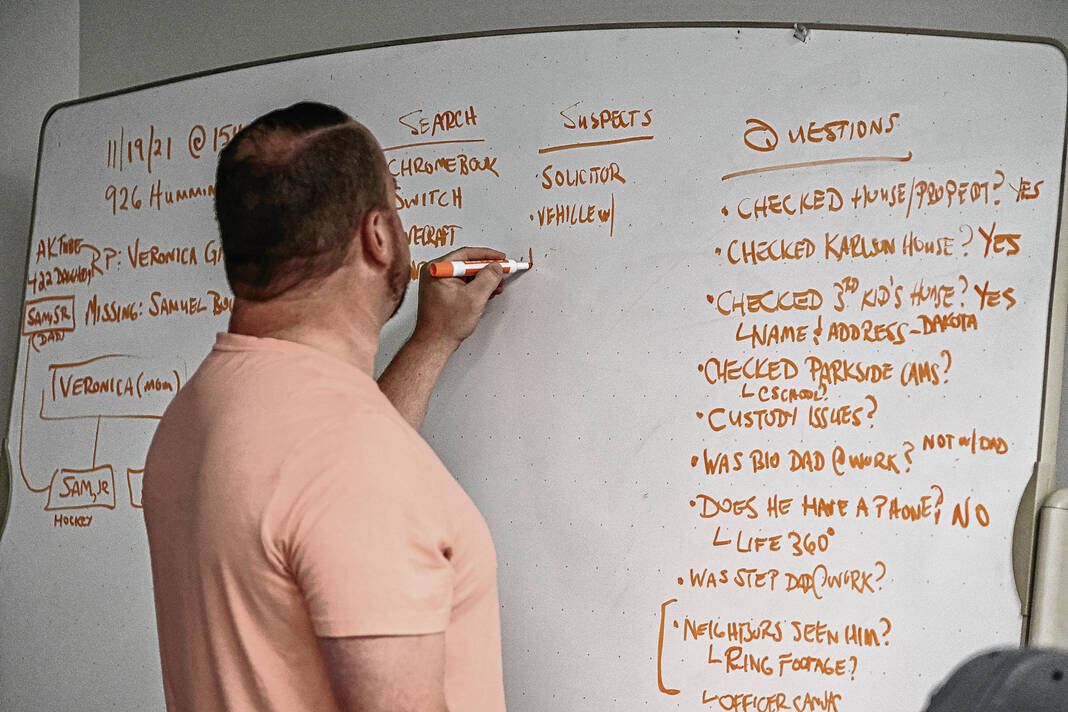 11/19/21 @ 154
926 HUMMIN
AK TUBE
422 DAUGHN
RP: VERONICA G
SAM, SR
(DAD)
MISSING: SAMUEL BOU
VERONICA (MOM)
SAM, JR
HOCKEY
SEARCH
CHROMEBOOK
SWITCH
NECRAFT
SUSPECTS
• SOLICITOR
• VEHICLE W/
QUESTIONS
• CHECKED HOUSE/PROPERTY? YES
• CHECKED KARLSON HOUSE? YES
• CHECKED 3RD KID'S HOUSE? YES
NAME & ADDRESS - DAKOTA
• CHECKED PARKSIDE CAMS?
CSCHOOL?
• CUSTODY ISSUES?
• WAS BIO DAD @ WORK? NOT W/ DAD
• DOES HE HAVE A PHONE? NO
LIFE 360°
• WAS STEP DAD @ WORK?
• NEIGHBORS SEEN HIM?
RING FOOTAGE?
OFFICER CANVAS